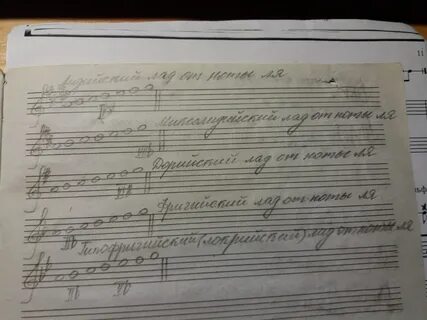 Лидийский лад от ноты ля
Миксолидийский лад от ноты ля
Дорийский лад от ноты ля
Фригийский лад от ноты ля.
Гипофригийский (локрийский) лад от ноты ля
11